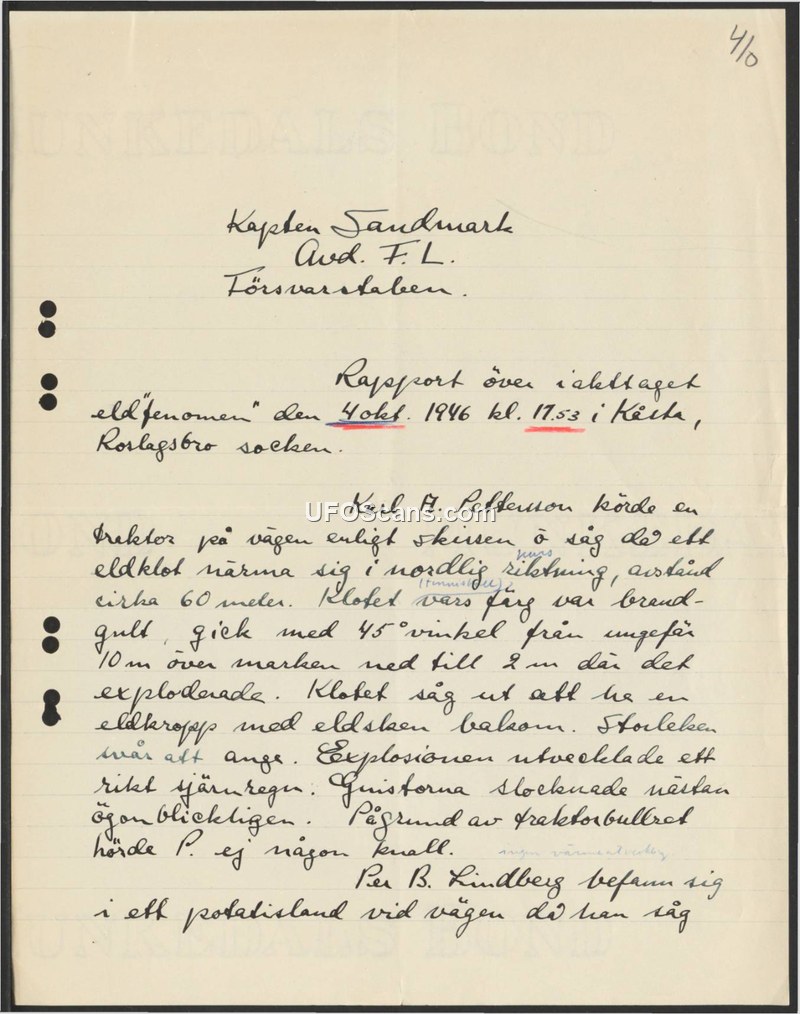 4/10
UNKEDALS BOND
Kapten Sandmark
Avd. F. L.
Försvarstaben.
Rapport över iakttaget
eld"fenomen" den 4 okt. 1946 kl. 17.53 i Kåsta,
Roslagsbro socken.
Karl A. Pettersson körde en
UFOScans.com
traktor på vägen enligt skissen o såg då ett
eldklot närma sig i nordlig riktning, avstånd
cirka 60 meter. Klotet vars färg var brand-
gult, gick med 45° vinkel från ungefär
10 m över marken ned till 2 m där det
exploderade. Klotet såg ut att ha en
eldkropp med eldsken bakom. Storleken
svår att ange. Explosionen utvecklade ett
rikt sjärnregn. Gnistorna slocknade nästan
ögonblickligen. Pågrund av traktorbullret
hörde P. ej någon knall.
Per B. Lindberg befann sig
i ett potatisland vid vägen då han såg